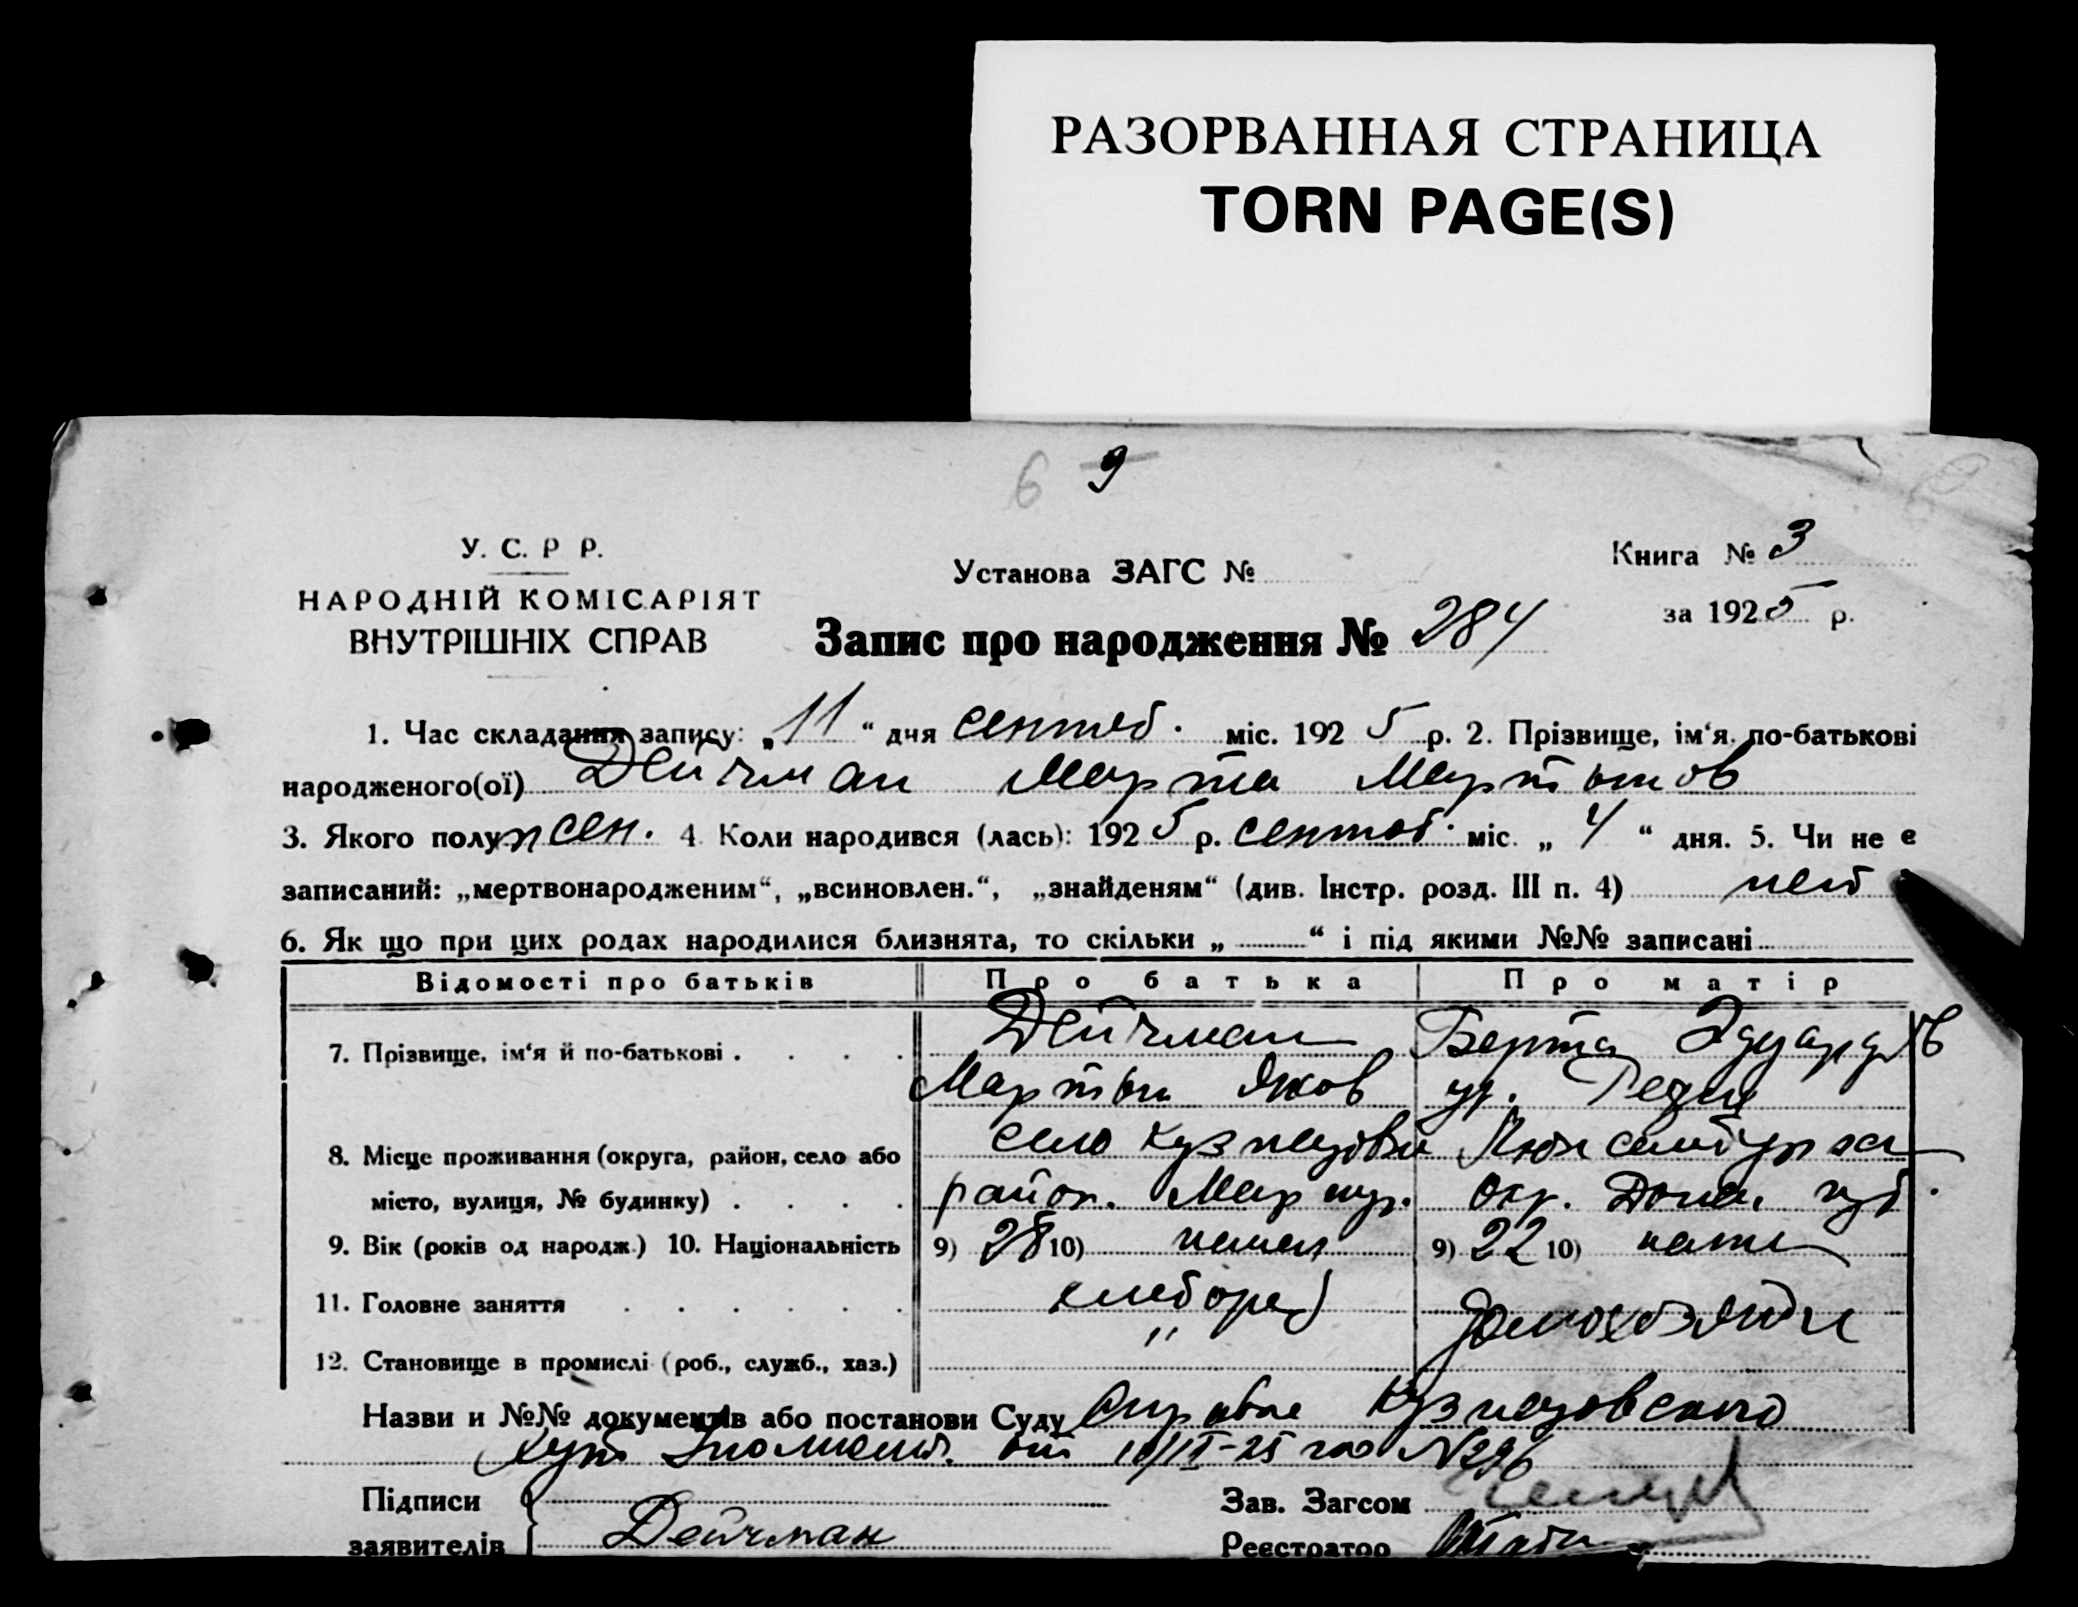 РАЗОРВАННАЯ СТРАНИЦА
TORN PAGE(S)
6 9
У. С. Р Р.
НАРОДНІЙ КОМІСАРІЯТ
ВНУТРІШНІХ СПРАВ
Установа ЗАГС №
Книга № 3
за 1925 р.
Запис про народження № 284
1. Час складання запису: „11“ дня сентяб. міс. 1925 р. 2. Прізвище, ім‘я по-батькові
народженого(ої) Дейчман Марта Мартынов
3. Якого полу жен. 4. Коли народився (лась): 1925 р. сентяб. міс. „4“ дня. 5. Чи не є
записаний: „мертвонародженим“, „всиновлен.“, „знайденям“ (див. Інстр. розд. III п. 4) нет
6. Як що при цих родах народилися близнята, то скільки „ “ і під якими №№ записані
Відомості про батьків Про батька Про матір
7. Прізвище, ім‘я й по-батькові . . . . Дейчман Берта Эдуардов
Мартын Яков ур.
8. Місце проживання (округа, район, село або село Кузнецовка Люксембург
місто, вулиця, № будинку) . . . . район. Мариуп. окр. Донец. губ.
9. Вік (років од народж.) 10. Національність 9) 28 10) немец 9) 22 10) немк
11. Головне заняття . . . . . . хлебороб домохозяйк
12. Становище в промислі (роб., служб., хаз.) "
Назви и №№ документів або постанови Суду Справка Кузнецовского
хут от 10/IX-25 года №296
Підписи
заявителів Дейчман
Зав. Загсом
Реєстратор